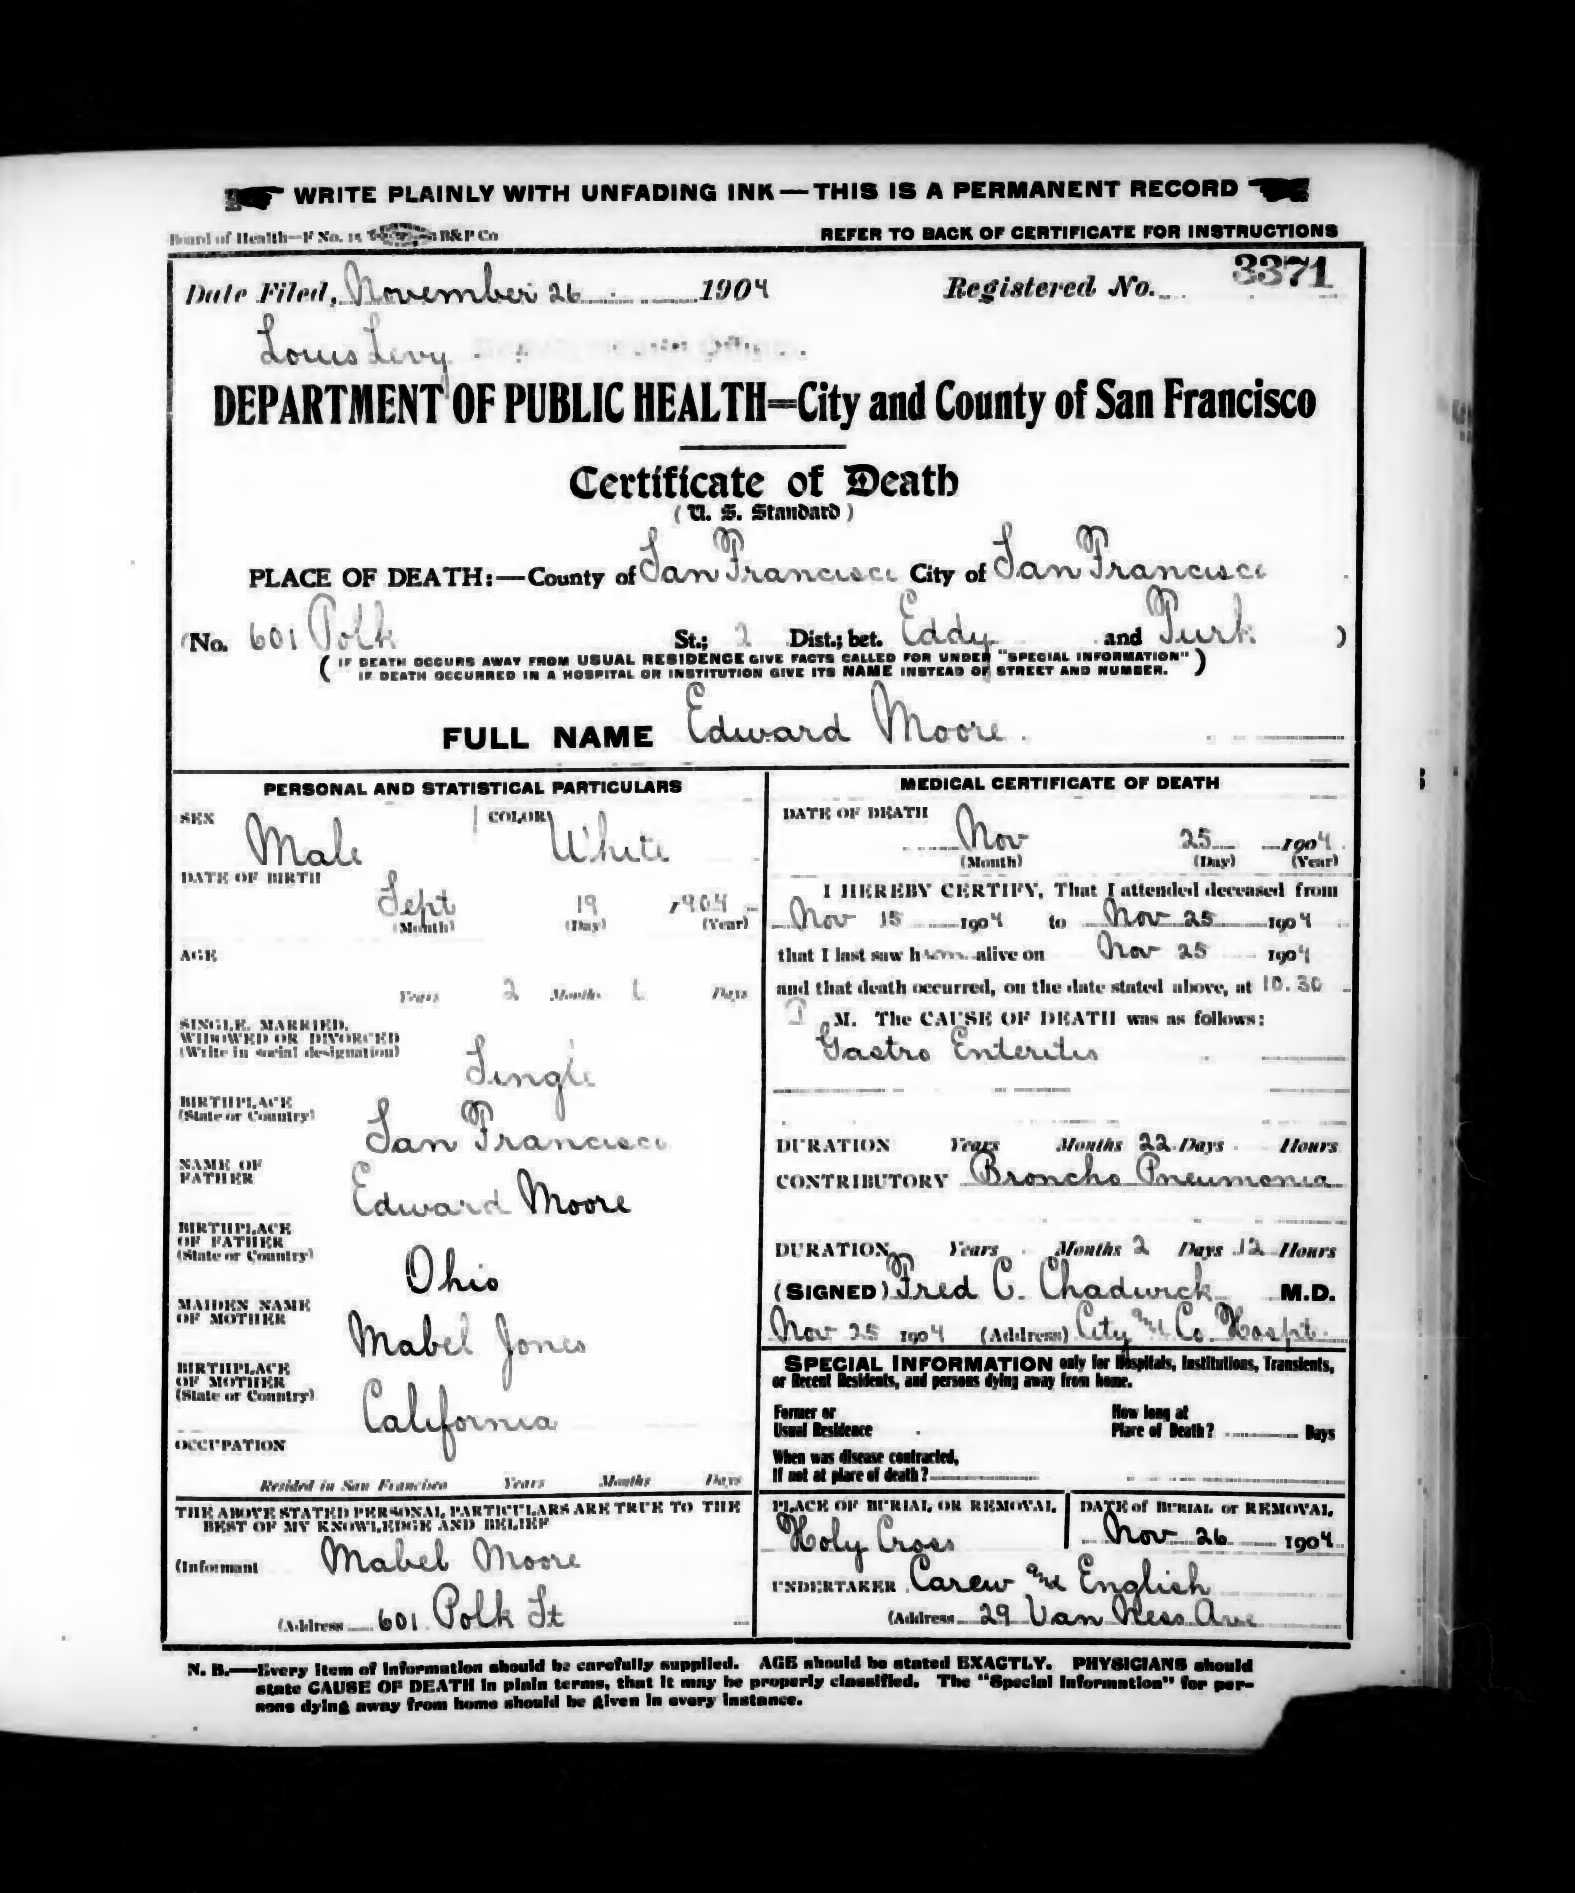 WRITE PLAINLY WITH UNFADING INK — THIS IS A PERMANENT RECORD
Board of Health—F No. 15 B&P Co REFER TO BACK OF CERTIFICATE FOR INSTRUCTIONS
Date Filed, November 26 1904 Registered No. 3371
Louis Levy
DEPARTMENT OF PUBLIC HEALTH=City and County of San Francisco
Certificate of Death
(U. S. Standard)
PLACE OF DEATH:—County of San Francisco City of San Francisco
(No. 601 Polk St.; 2 Dist.; bet. Eddy and Turk )
( IF DEATH OCCURS AWAY FROM USUAL RESIDENCE GIVE FACTS CALLED FOR UNDER "SPECIAL INFORMATION" )
IF DEATH OCCURRED IN A HOSPITAL OR INSTITUTION GIVE ITS NAME INSTEAD OF STREET AND NUMBER.
FULL NAME Edward Moore.
PERSONAL AND STATISTICAL PARTICULARS
SEX Male COLOR White
DATE OF BIRTH
Sept 19 1904
(Month) (Day) (Year)
AGE
Years 2 Months 6 Days
SINGLE, MARRIED,
WIDOWED OR DIVORCED
(Write in social designation)
Single
BIRTHPLACE
(State or Country)
San Francisco
NAME OF
FATHER
Edward Moore
BIRTHPLACE
OF FATHER
(State or Country)
Ohio
MAIDEN NAME
OF MOTHER
Mabel Jones
BIRTHPLACE
OF MOTHER
(State or Country)
California
OCCUPATION
Resided in San Francisco Years Months Days
THE ABOVE STATED PERSONAL PARTICULARS ARE TRUE TO THE
BEST OF MY KNOWLEDGE AND BELIEF
(Informant Mabel Moore
(Address 601 Polk St
MEDICAL CERTIFICATE OF DEATH
DATE OF DEATH
Nov 25 1904
(Month) (Day) (Year)
I HEREBY CERTIFY, That I attended deceased from
Nov 15 1904 to Nov 25 1904
that I last saw h alive on Nov 25 1904
and that death occurred, on the date stated above, at 10.30
P M. The CAUSE OF DEATH was as follows:
Gastro Enteritis
DURATION Years Months 22 Days Hours
CONTRIBUTORY Broncho Pneumonia
DURATION Years Months 2 Days 12 Hours
(SIGNED) Fred C. Chadwick M.D.
Nov 25 1904 (Address) City and Co. Hospt.
SPECIAL INFORMATION only for Hospitals, Institutions, Transients,
or Recent Residents, and persons dying away from home.
Former or
Usual Residence
How long at
Place of Death? Days
When was disease contracted,
If not at place of death?
PLACE OF BURIAL OR REMOVAL
Holy Cross
DATE of BURIAL or REMOVAL
Nov 26 1904
UNDERTAKER Carew and English
(Address 29 Van Ness Ave
N. B.—Every item of information should be carefully supplied. AGE should be stated EXACTLY. PHYSICIANS should
state CAUSE OF DEATH in plain terms, that it may be properly classified. The "Special Information" for per-
sons dying away from home should be given in every instance.